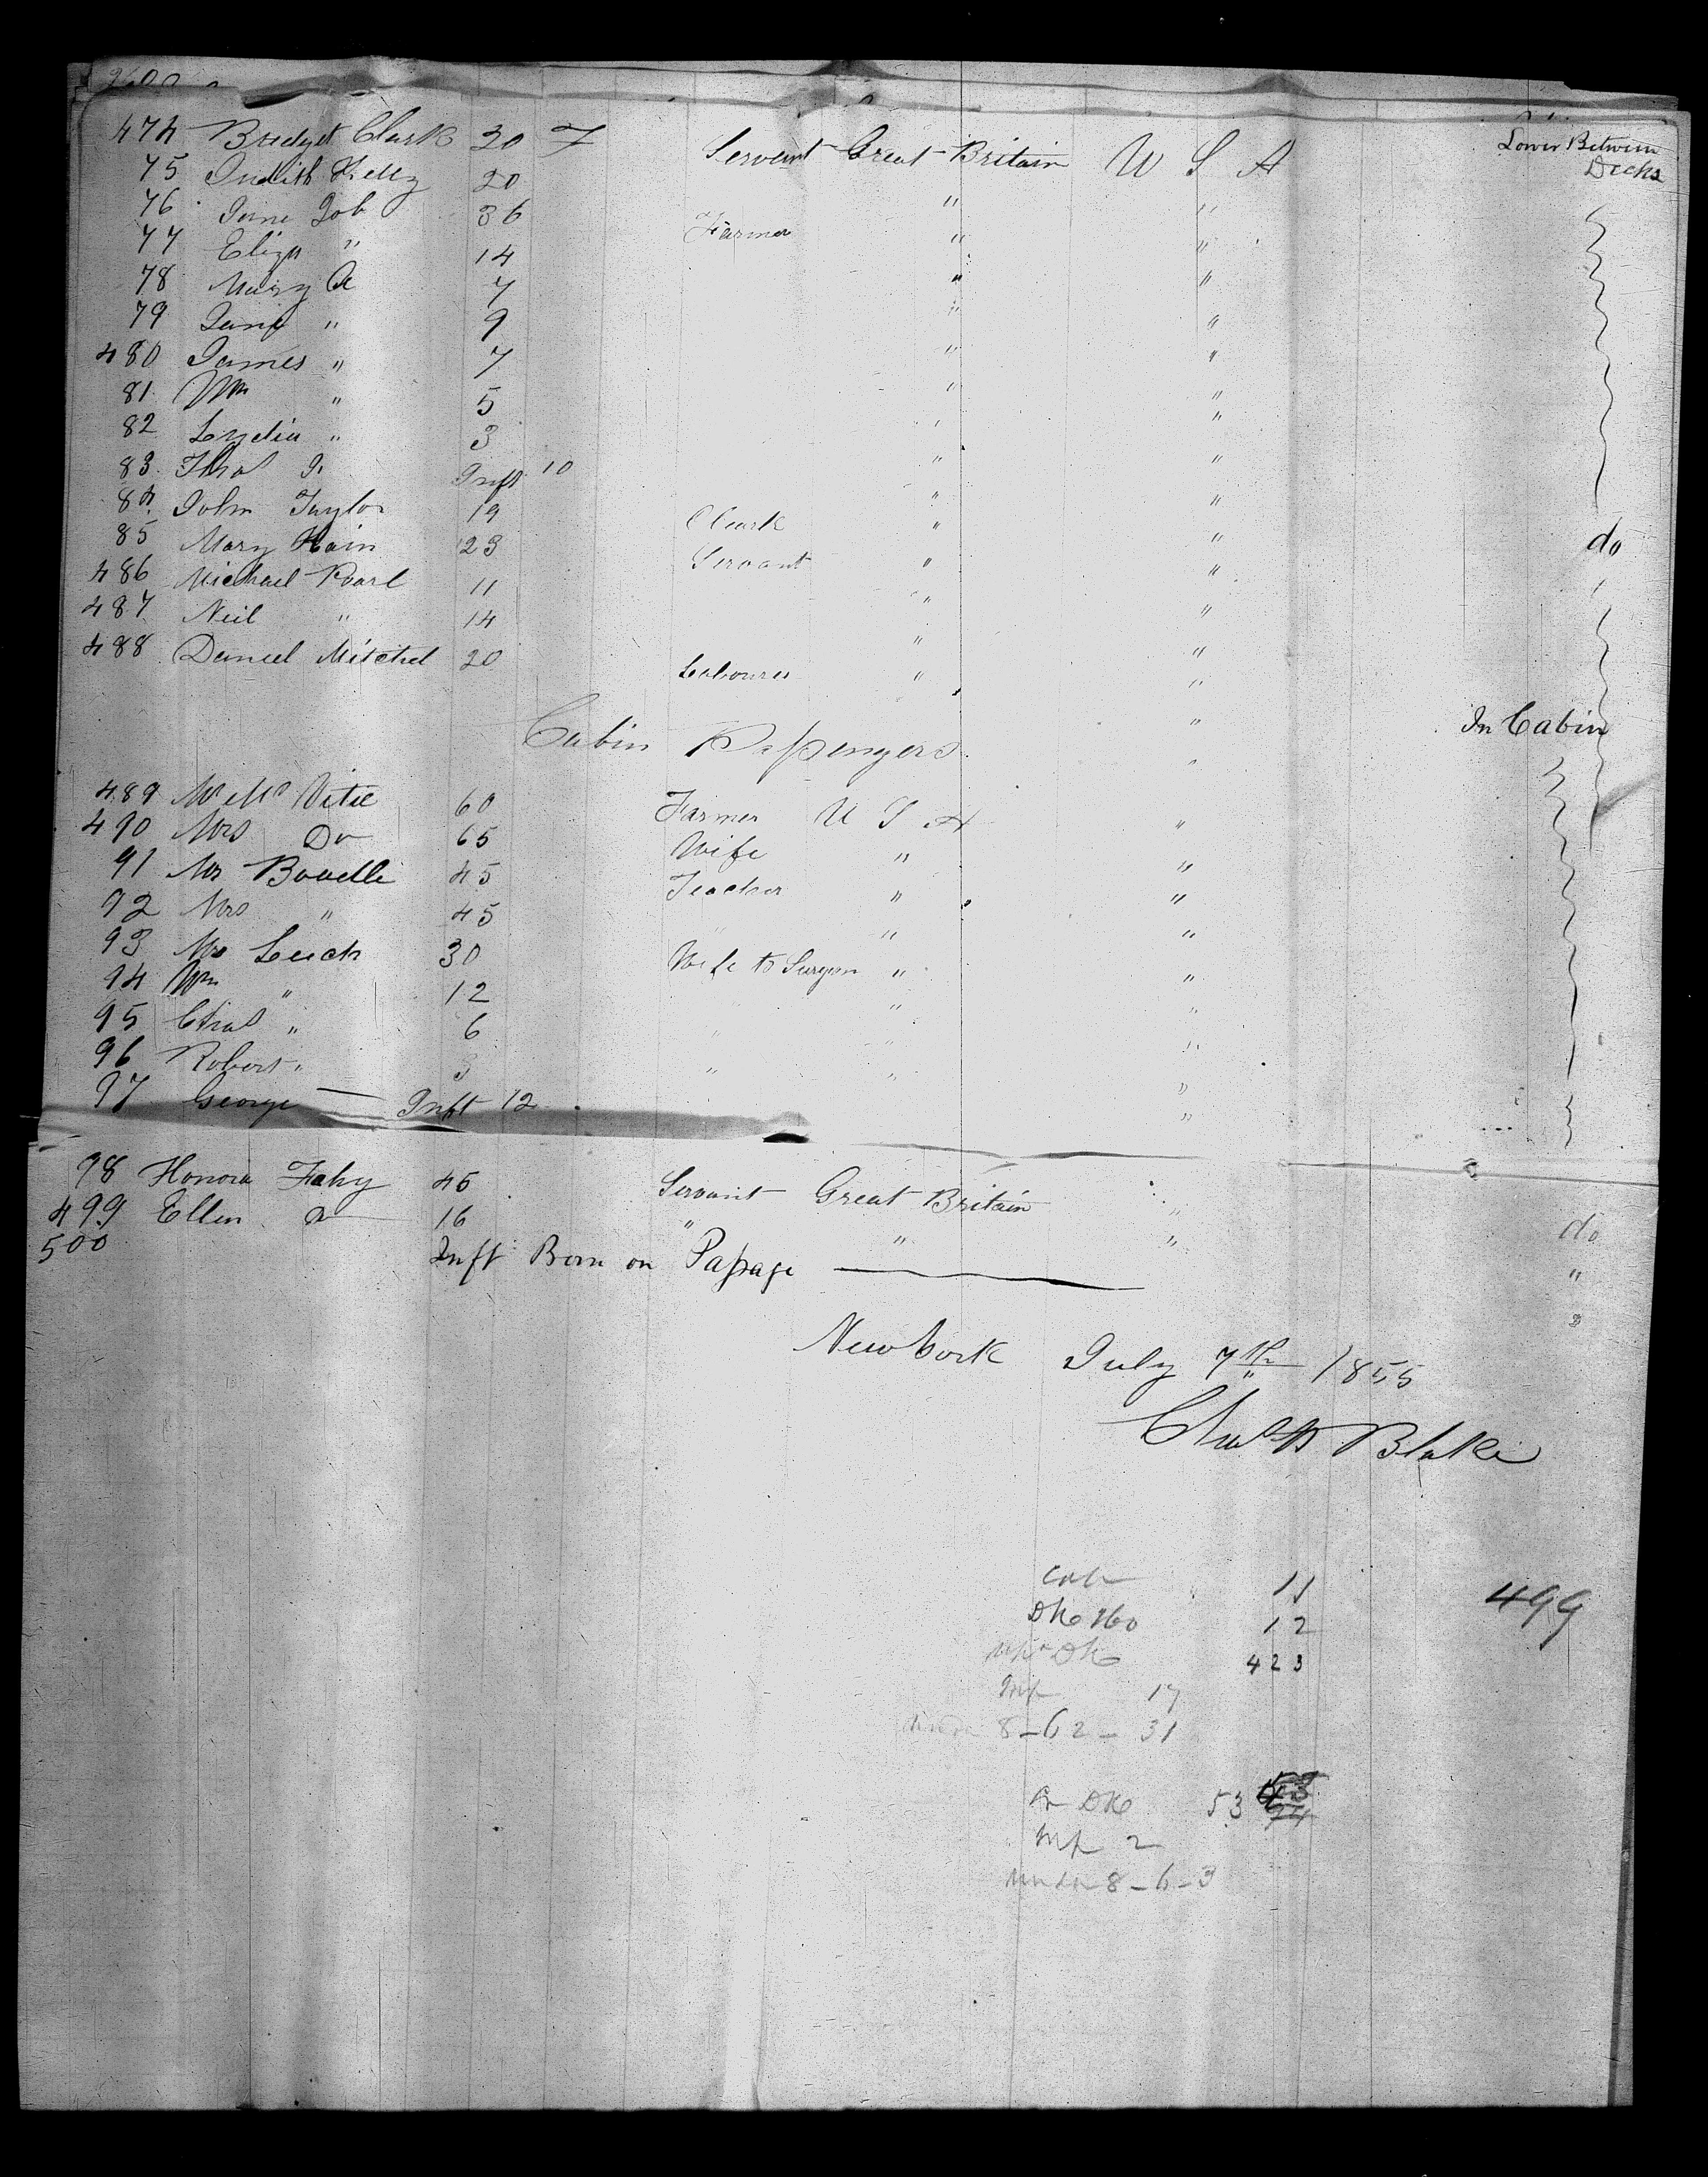 474 Bridget Clark 20 F Servant Great Britain U S A Lower Between
Decks
75 Judith Kelly 20 " "
76 Jane Job 36 Farmer " "
77 Eliza " 14 " "
78 Mary A 7 " "
79 Jane " 9 " "
480 James " 7 " "
81 Wm " 5 " "
82 Lydia " 3 " "
83 Thos J. Inft 10 " "
84 John Taylor 19 Clark " "
85 Mary Hain 23 Servant " " do
486 Michael 11 " "
487 Neil " 14 " "
488 Daniel Mitchel 20 Labourer " "
Cabin Passengers In Cabin
489 60 Farmer U S A "
490 Mrs Do 65 Wife " "
91 Mr 45 Teacher " "
92 Mrs " 45 " "
93 Mrs Leich 30 Wife to Surgeon " "
94 Wm " 12 " "
95 Chas " 6 " "
96 Robert " 3 " " "
97 George — Inft 12 "
98 Honora Fahy 45 Servant Great Britain "
499 Ellen Do 16 " " " do
500 Inft Born on Passage "
New York July 7th 1855
Chas Blake
11 499
Dk Ho 12
Upr Dk 423
Inf 17
under 8 - 62 - 31
Dk 53
Inf 2
under 8 - 6 - 3